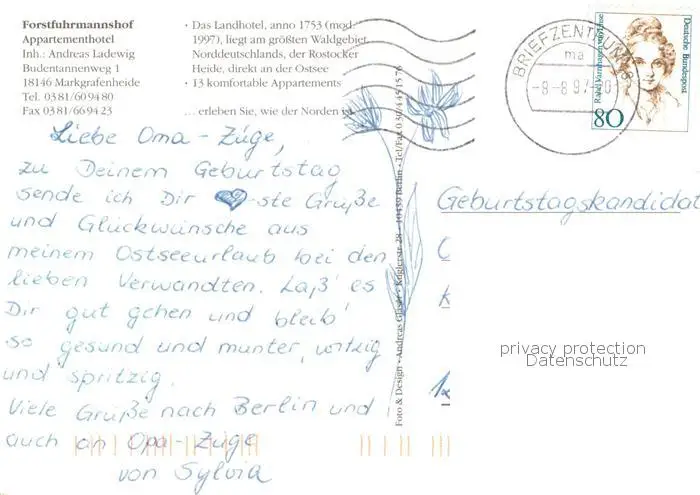 Forstfuhrmannshof
Appartementhotel
Inh.: Andreas Ladewig
Budentannenweg 1
18146 Markgrafenheide
Tel. 03 81/60 94 80
Fax 03 81/66 94 23
• Das Landhotel, anno 1753 (mod.
1997), liegt am größten Waldgebiet
Norddeutschlands, der Rostocker
Heide, direkt an der Ostsee
• 13 komfortable Appartements
... erleben Sie, wie der Norden is
Liebe Oma-Züge,
zu Deinem Geburtstag
sende ich Dir ste Grüße
und Glückwünsche aus
meinem Ostseeurlaub bei den
lieben Verwandten. Laß' es
Dir gut gehen und bleib'
so gesund und munter, witzig
und spritzig.
Viele Grüße nach Berlin und
auch an Opa-Züge
von Sylvia
Foto & Design • Andreas • Kuglerstr. 28 • 10439 Berlin • Tel/Fax 030/445 15 76
BRIEFZENTRUM 18
ma
-8-8.97-20
Rahel Varnhagen von Ense
Deutsche Bundespost
80
Geburtstagskandidat
privacy protection
Datenschutz